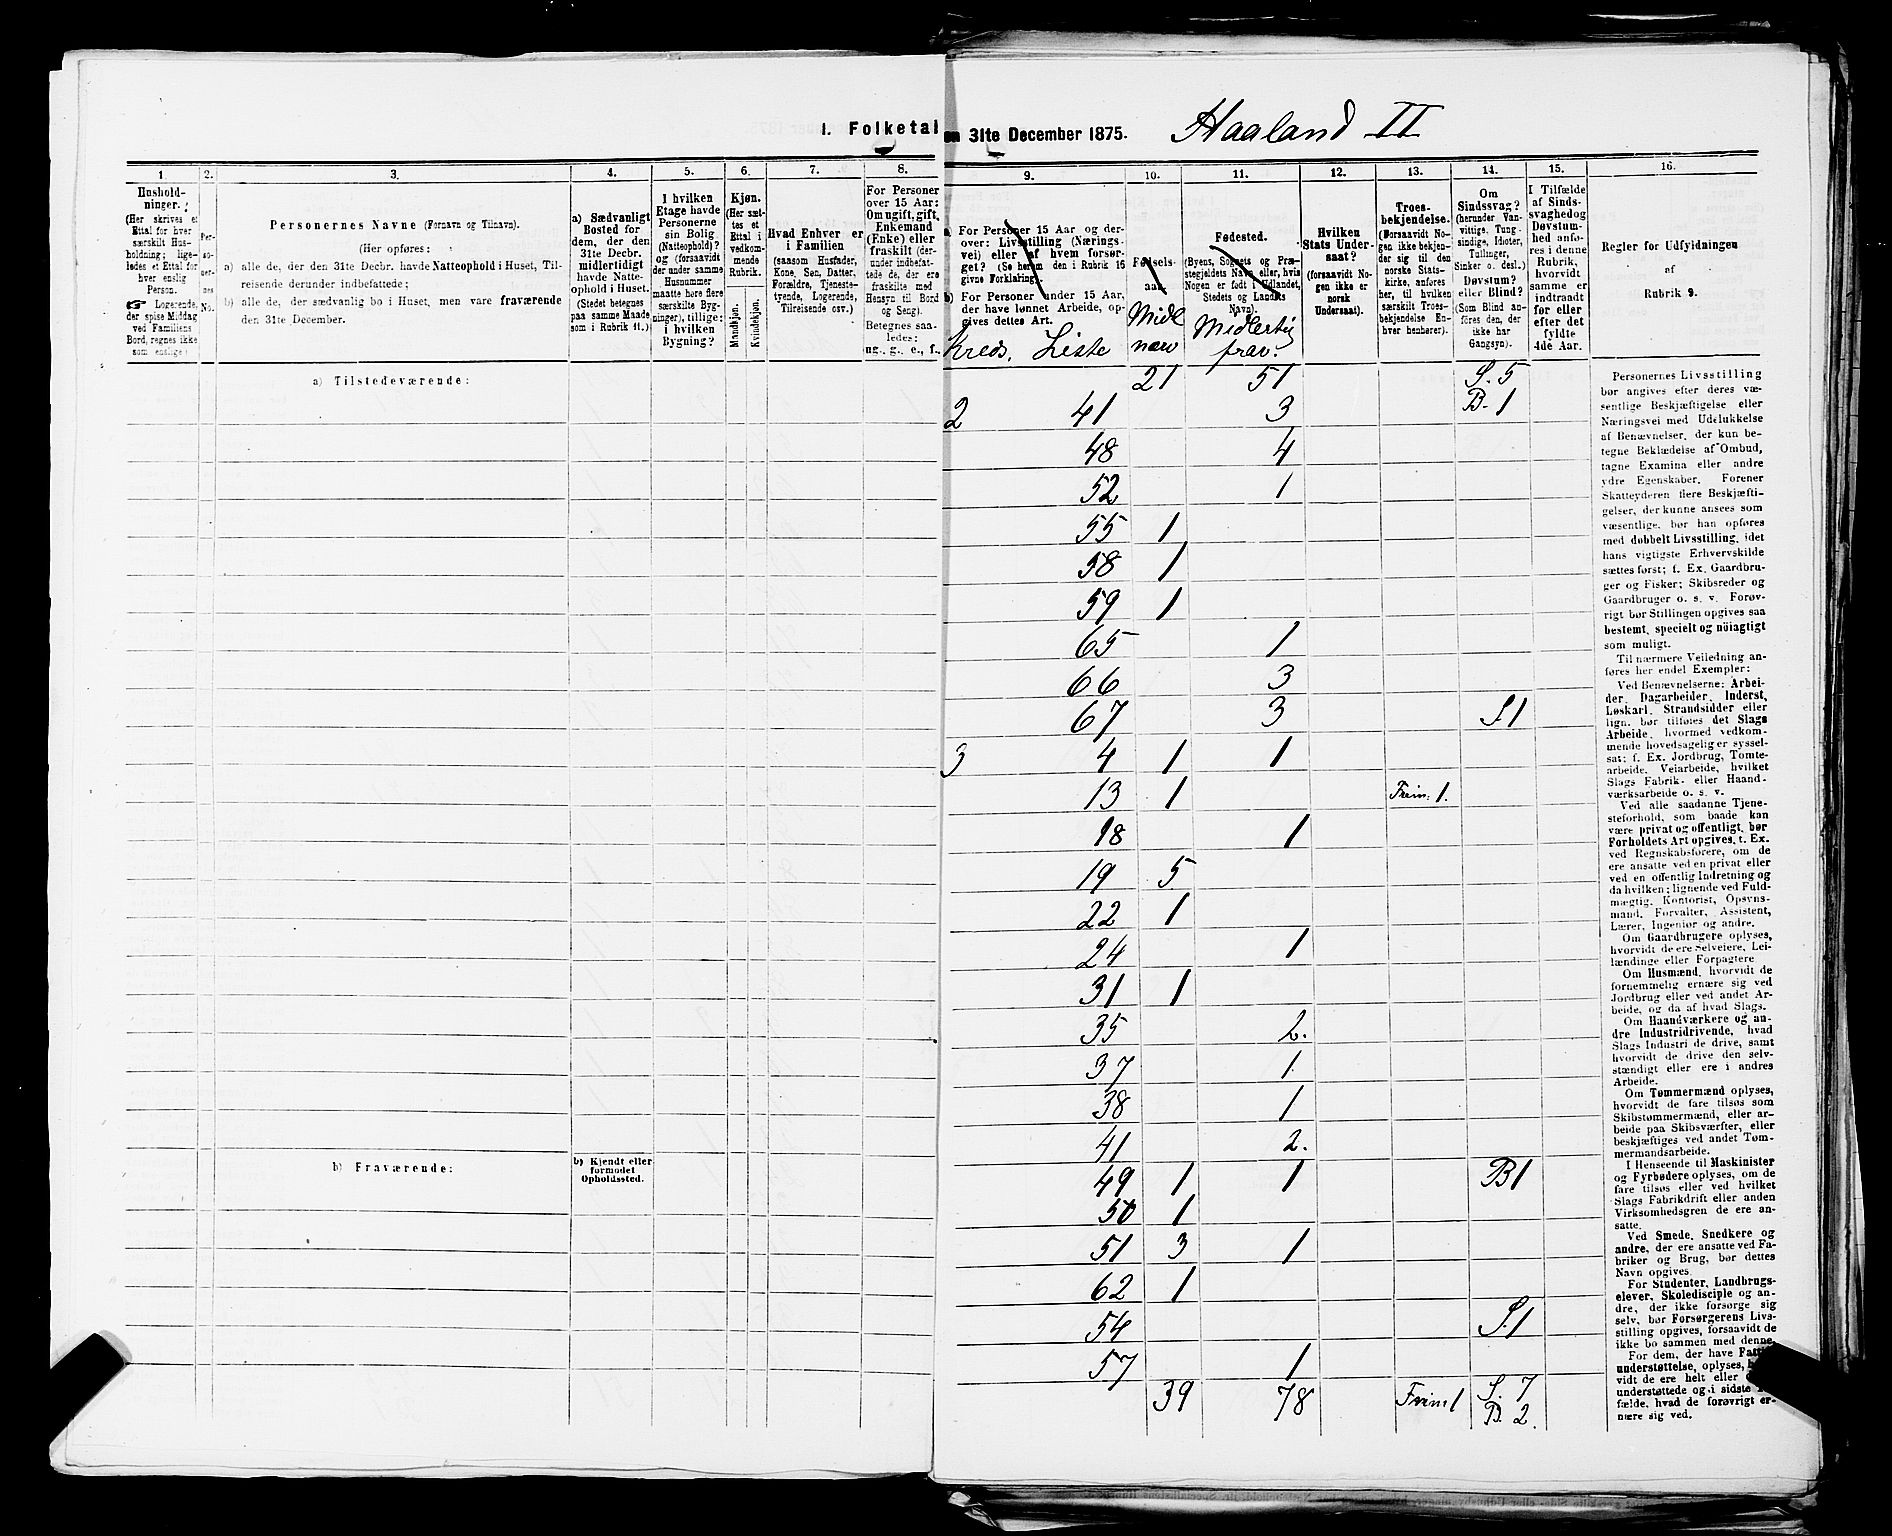 1. Folketal
en 31te December 1875. Haaland II
1. 2. 3. 4. 5. 6. 7. 8. 9. 10. 11. 12. 13. 14. 15. 16.
Hushold-
ninger.
(Her skrives et
Ettal for hver
særskilt Hus-
holdning; lige-
ledes et Ettal for
hver enslig
Person.
☞ Logerende,
der spise Middag
ved Familiens
Bord, regnes ikke
som enslige)
Per-
so-
ner-
nes
No.
Personernes Navne (Fornavn og Tilnavn).
(Her opføres:
a) alle de, der den 31te Decbr. havde Natteophold i Huset, Til-
reisende derunder indbefattede;
b) alle de, der sædvanlig bo i Huset, men vare fraværende
den 31te December.
a) Sædvanligt
Bosted for
dem, der den
31te Decbr.
midlertidigt
havde Natte-
ophold i Huset.
(Stedet betegnes
paa samme Maade
som i Rubrik 11.)
I hvilken
Etage havde
Personerne
sin Bolig
(Natteophold)?
og (forsaavidt
der under samme
Husnummer
maatte høre flere
særskilte Byg-
ninger), tillige:
i hvilken
Bygning?
Kjøn.
(Her sæt-
tes et
Ettal i
vedkom-
mende
Rubrik.
Mandkjøn.
Kvindekjøn.
Hvad Enhver er
i Familien
(saasom Husfader,
Kone, Søn, Datter,
Forældre, Tjeneste-
tyende, Logerende,
Tilreisende osv.)
For Personer
over 15 Aar:
Om ugift, gift,
Enkemand
(Enke) eller
fraskilt (der-
under indbefat-
tede de, der ere
fraskilte med
Hensyn til Bord
og Seng).
Betegnes saa-
ledes:
ug., g., e., f.
a. For Personer 15 Aar og der-
over: Livsstilling (Nærings-
vei) eller af hvem forsør-
get? (Se herom den i Rubrik 16
givne Forklaring).
b) For Personer under 15 Aar,
der have lønnet Arbeide, op-
gives dettes Art.
Kreds. Liste
Fødsels-
aar
Midl
nærv
Fødested.
(Byens, Sognets og Præ-
stegjeldets Navn eller, hvis
Nogen er født i Udlandet,
Stedets og Landets
Navn).
Midlertig
frav.
Hvilken
Stats Under-
saat?
(forsaavidt No-
gen ikke er
norsk
Undersaat).
Troes-
bekjendelse.
(Forsaavidt No-
gen ikke bekjen-
der sig til den
norske Stats-
kirke, anføres
her, til hvilken
særskilt Troes-
bekjendelse En-
hver henhører).
Om
Sindssvag?
(herunder Van-
vittige, Tung-
sindige, Idioter,
Tullinger,
Sinker o. desl.)
Døvstum?
eller Blind?
(Som Blind an-
føres den, der
ikke har
Gangsyn).
I Tilfælde
af Sinds-
svaghed og
Døvstum-
hed anfø-
res i denne
Rubrik,
hvorvidt
samme er
indtraadt
før eller
efter det
fyldte
4de Aar.
Regler for Udfyldningen
af
Rubrik 9.
a) Tilstedeværende:
b) Fraværende:
b) Kjendt eller
formodet
Opholdssted.
21 51 S. 5
2 41 3 B. 1
48 4
52 1
55 1
58 1
59 1
65 1
66 3
67 3 S1
3 4 1 1
13 1 Frim: 1.
18 1
19 5
22 1
24 1
31 1
35 2.
37 1.
38 1
41 2.
49 1 1 B1
50 1
51 3 1
62 1
54 S.1
57 1
39 78 Frim1 S. 7
B. 2.
Personernes Livsstilling
bør angives efter deres væ-
sentlige Beskjæftigelse eller
Næringsvei med Udelukkelse
af Benævnelser, der kun be-
tegne Beklædelse af Ombud,
tagne Examina eller andre
ydre Egenskaber. Forener
Skatteyderen flere Beskjæfti-
gelser, der kunne ansees som
væsentlige, bør han opføres
med dobbelt Livsstilling, idet
hans vigtigste Erhvervskilde
sættes først; f. Ex. Gaardbru-
ger og Fisker; Skibsreder og
Gaardbruger o. s. v. Forøv-
rigt bør Stillingen opgives saa
bestemt, specielt og nöiagtigt
som muligt.
Til nærmere Veiledning an-
føres her endel Exempler:
Ved Benævnelserne: Arbei-
der, Dagarbeider, Inderst,
Løskarl, Strandsidder eller
lign. bør tilføies det Slags
Arbeide, hvormed vedkom-
mende hovedsagelig er syssel-
sat; f. Ex. Jordbrug, Tomte-
arbeide, Veiarbeide, hvilket
Slags Fabrik- eller Haand-
værksarbeide o. s. v.
Ved alle saadanne Tjene-
steforhold, som baade kan
være privat og offentligt, bør
Forholdets Art opgives, t. Ex.
ved Regnskabsførere, om de
ere ansatte ved en privat eller
ved en offentlig Indretning og
da hvilken; lignende ved Fuld-
mægtig, Kontorist, Opsyns-
mand, Forvalter, Assistent,
Lærer, Ingeniør og andre.
Om Gaardbrugere oplyses,
hvorvidt de ere Selveiere, Lei-
lændinge eller Forpagtere.
Om Husmænd, hvorvidt de
fornemmelig ernære sig ved
Jordbrug eller ved andet Ar-
beide, og da af hvad Slags.
Om Haandværkere og an-
dre Industridrivende, hvad
Slags Industri de drive, samt
hvorvidt de drive den selv-
stændigt eller ere i andres
Arbeide.
Om Tømmermænd oplyses,
hvorvidt de fare tilsøs som
Skibstømmermænd, eller ar-
beide paa Skibsværfter, eller
beskjæftiges ved andet Tøm-
mermandsarbeide.
I Henseende til Maskinister
og Fyrbødere oplyses, om de
fare tilsøs eller ved hvilket
Slags Fabrikdrift eller anden
Virksomhedsgren de ere an-
satte.
Ved Smede, Snedkere og
andre, der ere ansatte ved Fa-
briker og Brug, bør dettes
Navn opgives.
For Studenter, Landbrugs-
elever, Skoledisciple og an-
dre, der ikke forsørge sig
selv, bør Forsørgerens Livs-
stilling opgives, forsaavidt de
ikke bo sammen med denne.
For dem, der have Fattig-
understøttelse, oplyses,
vidt de ere helt eller
understøttede og i sidste
fælde, hvad de forøvrigt er-
nære sig ved.